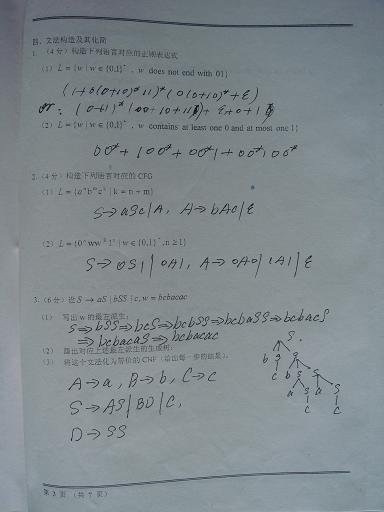 四、文法构造及其化简
1. (4分)构造下列语言对应的正规表达式
(1) L = {w | w ∈ {0,1}*, w does not end with 01}
or:
(2) L = {w | w ∈ {0,1}*, w contains at least one 0 and at most one 1}
00* + 100* + 00*1 + 00*100*
2.(4分)构造下列语言对应的 CFG
(1) L = {aⁿbᵐcᵏ | k = n + m}
S→aSc|A, A→bAc|ε
(2) L = {0ⁿwwᴿ1ⁿ | w ∈ {0,1}*, n ≥ 1}
S→0S1|0A1, A→0A0|1A1|ε
3. (6分)设 S → aS | bSS | c, w = bcbacac
(1) 写出 w 的最左派生:
S⇒bSS⇒bcS⇒bcbSS⇒bcbaSS⇒bcbacS
⇒bcbacaS⇒bcbacac
(2) 画出对应上述最左派生的生成树;
(3) 将这个文法化为等价的 CNF(给出每一步的结果)。
A→a, B→b, C→c
S→AS|BD|C,
D→SS
S
b S S
c b S S
a S a S
c c
第 3 页 (共 7 页)